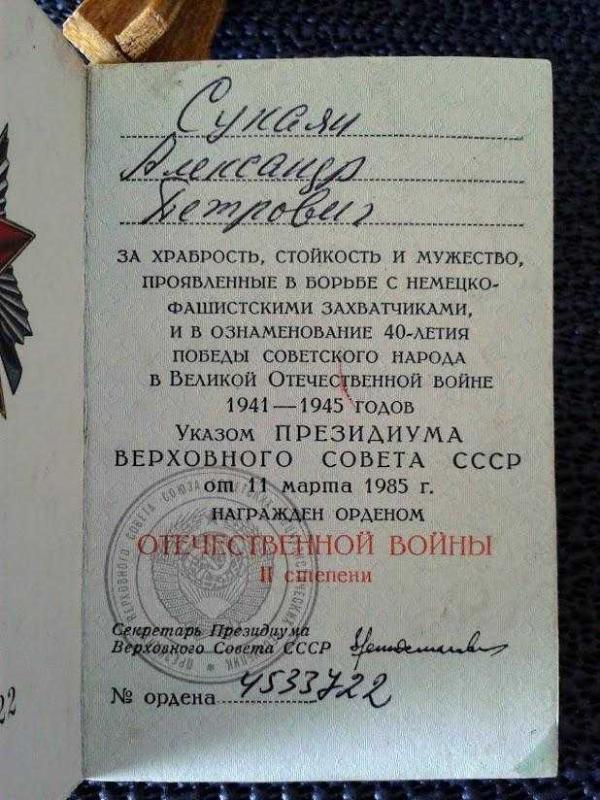 Сукаян
Александр
Петрович
ЗА ХРАБРОСТЬ, СТОЙКОСТЬ И МУЖЕСТВО,
ПРОЯВЛЕННЫЕ В БОРЬБЕ С НЕМЕЦКО-
ФАШИСТСКИМИ ЗАХВАТЧИКАМИ,
И В ОЗНАМЕНОВАНИЕ 40-ЛЕТИЯ
ПОБЕДЫ СОВЕТСКОГО НАРОДА
В ВЕЛИКОЙ ОТЕЧЕСТВЕННОЙ ВОЙНЕ
1941—1945 ГОДОВ
УКАЗОМ ПРЕЗИДИУМА
ВЕРХОВНОГО СОВЕТА СССР
от 11 марта 1985 г.
НАГРАЖДЕН ОРДЕНОМ
ОТЕЧЕСТВЕННОЙ ВОЙНЫ
II степени
Секретарь Президиума
Верховного Совета СССР
№ ордена 4533722